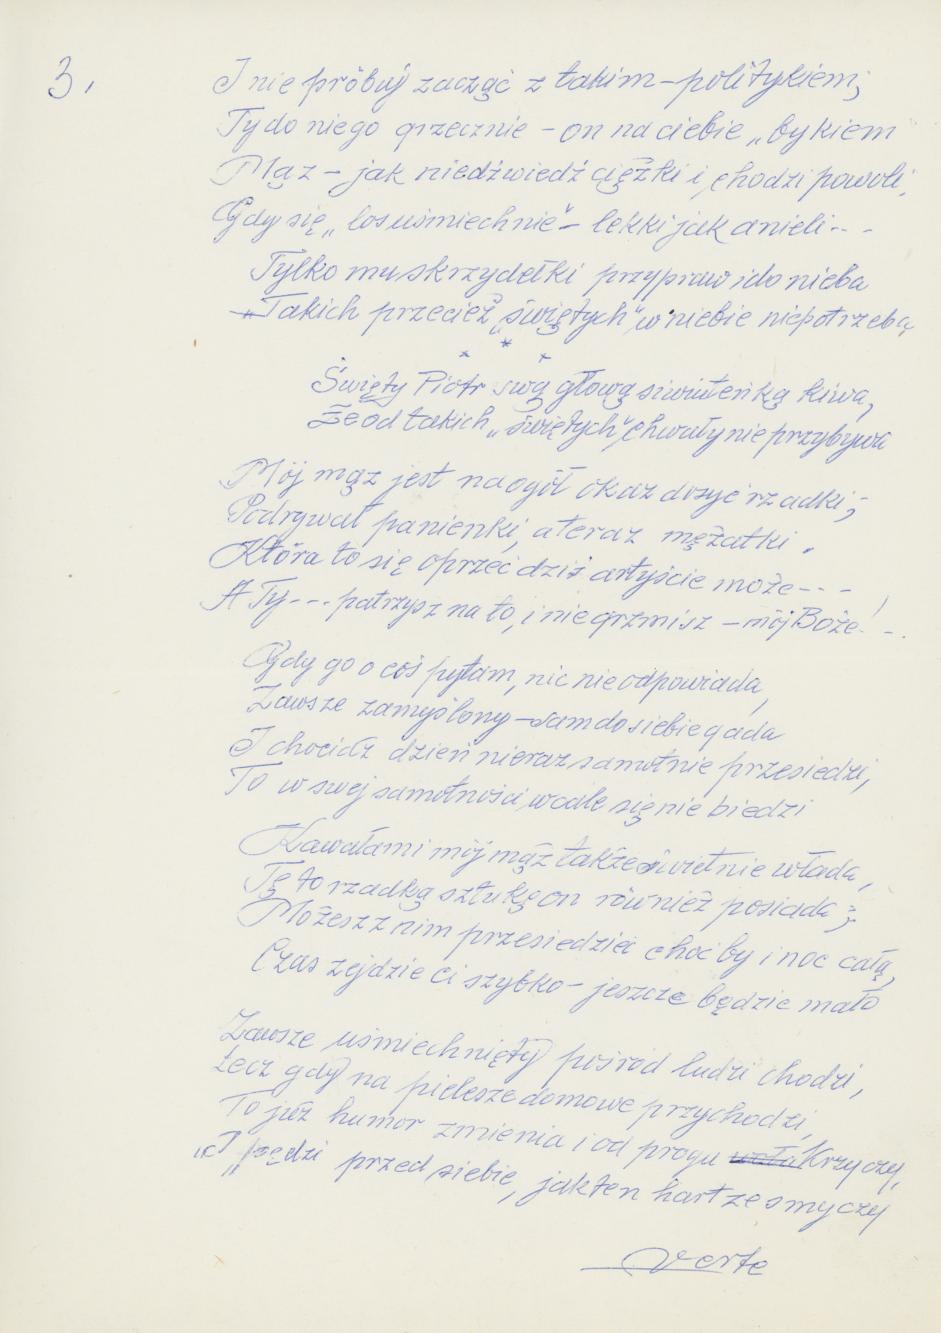 3.
I nie próbuj zacząć z takim – politykiem;
Ty do niego grzecznie – on na ciebie „bykiem
Mąż – jak niedźwiedź ciężki i chodzi powoli,
Gdy się „los uśmiechnie" – lekki jak anieli - - -
Tylko mu skrzydełki przypraw i do nieba
– Takich przecież „świętych" w niebie nie potrzeba
* * *
Święty Piotr swą głową siwiuteńką kiwa,
Że od takich „świętych", chwały nie przybywa
Mój mąż jest naogół okaz dosyć rzadki;
Podrywał panienki, a teraz mężatki.
Która to się oprzeć dziś artyście może - - -
A Ty - - - patrzysz na to, i nie grzmisz – mój Boże! - .
Gdy go o coś pytam, nic nie odpowiada,
Zawsze zamyślony – sam do siebie gada
I chociaż dzień nieraz samotnie przesiedzi,
To w swej samotności wcale się nie biedzi
Kawałami mój mąż także świetnie włada,
Tę to rzadką sztukę on również posiada;
Możesz z nim przesiedzieć choćby i noc całą,
Czas zejdzie ci szybko – jeszcze będzie mało
Zawsze uśmiechnięty pośród ludzi chodzi,
Lecz gdy na pielesze domowe przychodzi,
To już humor zmienia i od progu krzyczy,
I pędzi przed siebie, jak ten hart ze smyczy
Verte